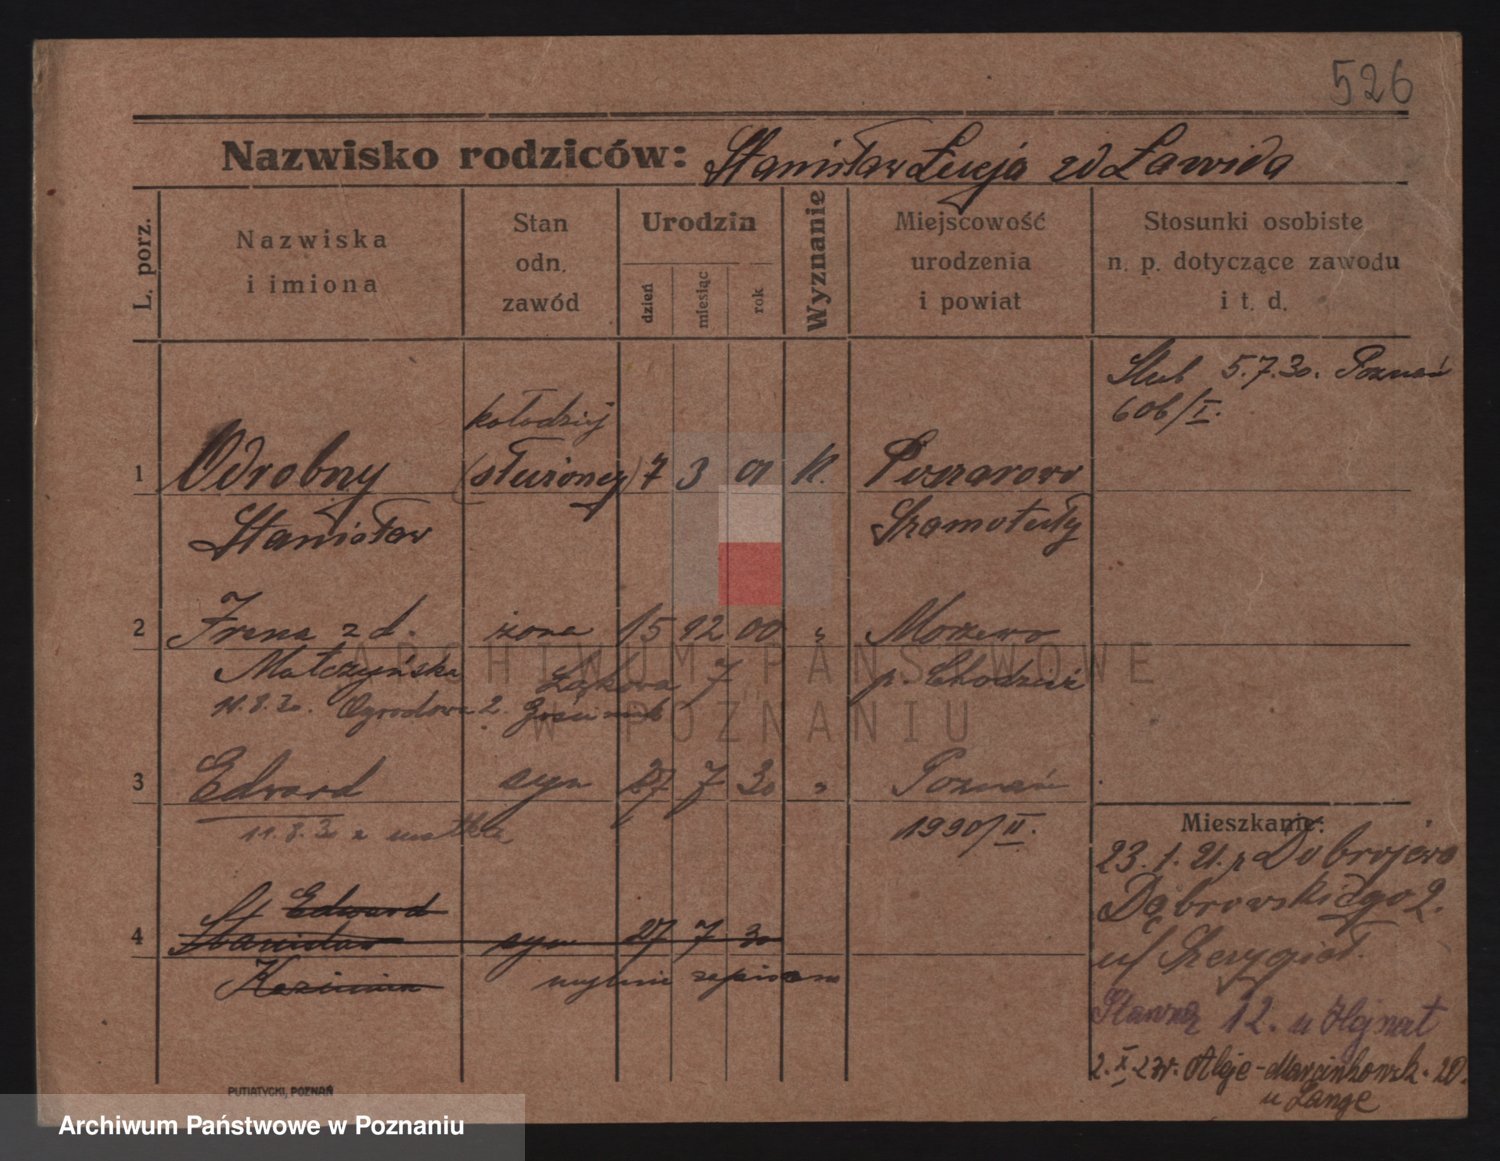 526
Nazwisko rodziców: Stanisław Łucja zd Ławida
L. porz.
Nazwiska i imiona
Stan odn. zawód
Urodzin
dzień
miesiąc
rok
Wyznanie
Miejscowość urodzenia i powiat
Stosunki osobiste n. p. dotyczące zawodu i t. d.
Ślub 5.7.30. Poznań
606/I.
kołodziej
1 Odrobny (służący) 7 3 01 K. Pożarowo
Stanisław Szamotuły
2 Irena zd. żona 15 12 00 " Morzewo
Matczyńska Łąkowa 7 p. Chodzież
11.8.30. Ogrodowa 2.
3 Edward syn 27 7 30 " Poznań
11.8.30 z matką 1990/II.
Mieszkanie:
23.1.21. z Dobrojewo
Dąbrowskiego 2.
St Edward
4 Stanisław syn 27 7 30
u/
Kazimier mylnie zapisano
12. u
2. X 27r. Aleje-Marcinkowsk. 20.
u Lange
PUTIATYCKI, POZNAŃ
ARCHIWUM PAŃSTWOWE
W POZNANIU
Archiwum Państwowe w Poznaniu